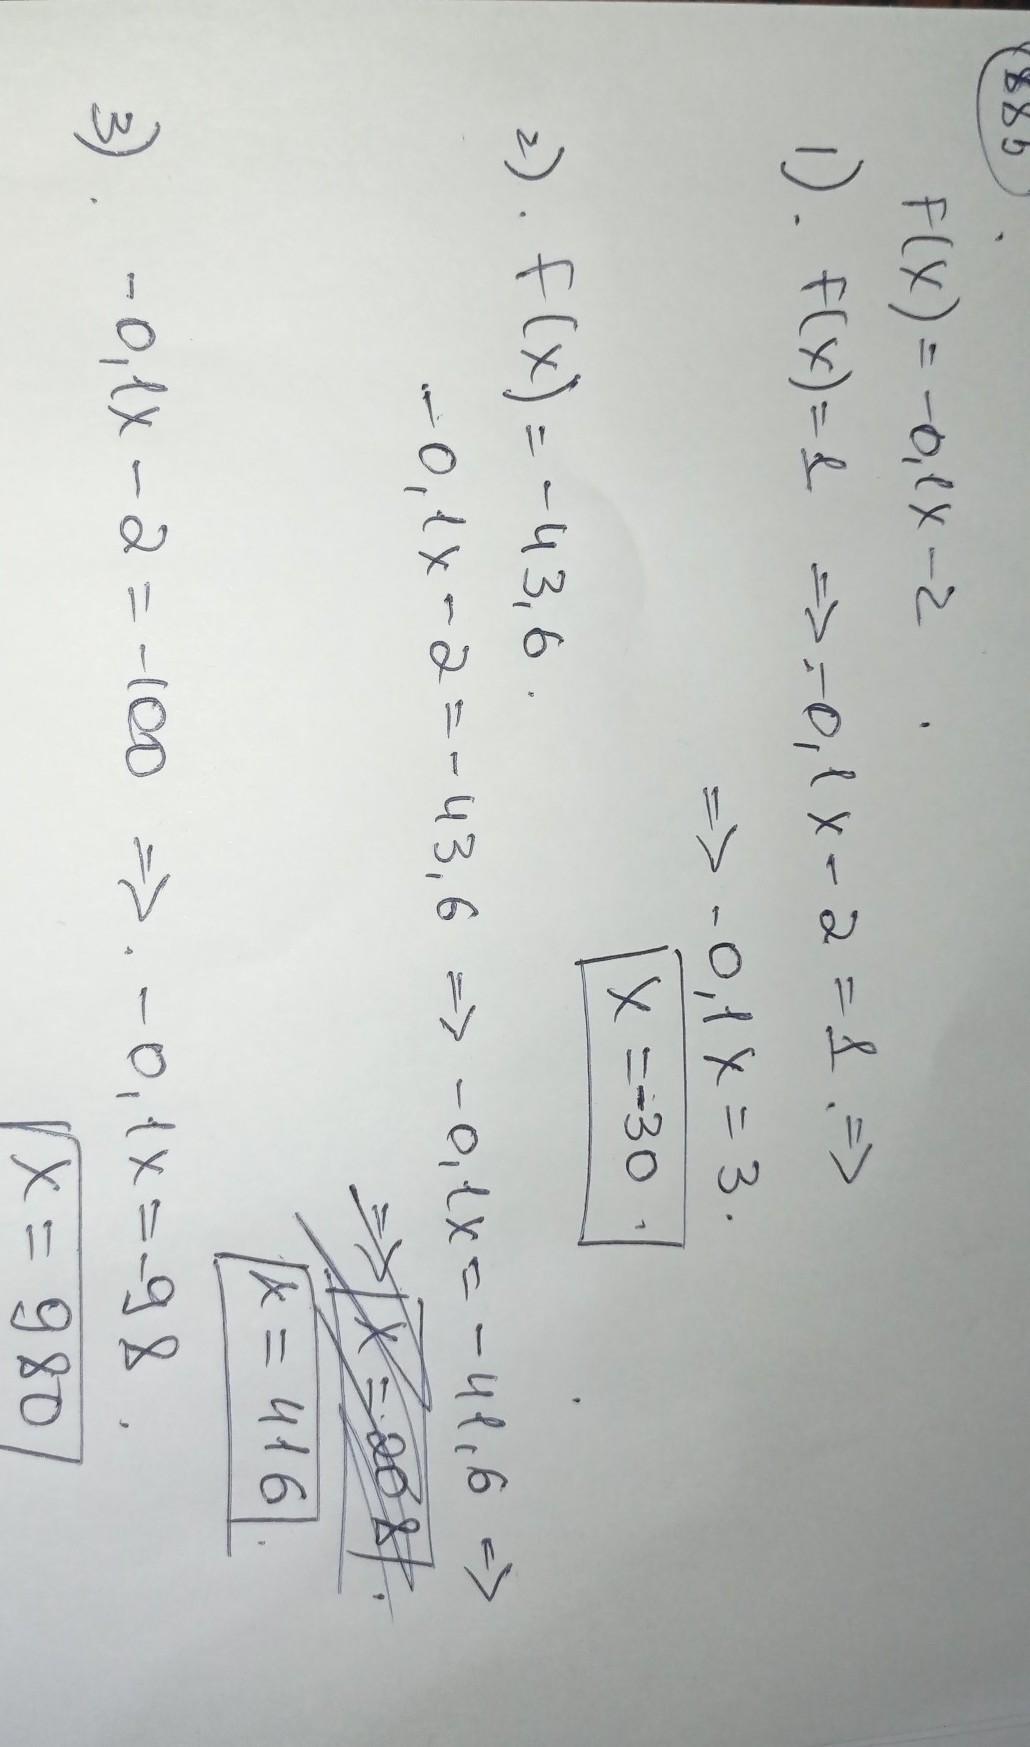 885
F(x) = -0,1x - 2
1). F(x) = 1 => -0,1x - 2 = 1 =>
=> -0,1x = 3.
x = -30.
2). F(x) = -43,6.
-0,1x - 2 = -43,6 => -0,1x = -41,6 =>
=> x = 208.
x = 416.
3). -0,1x - 2 = -100 => -0,1x = -98.
x = 980